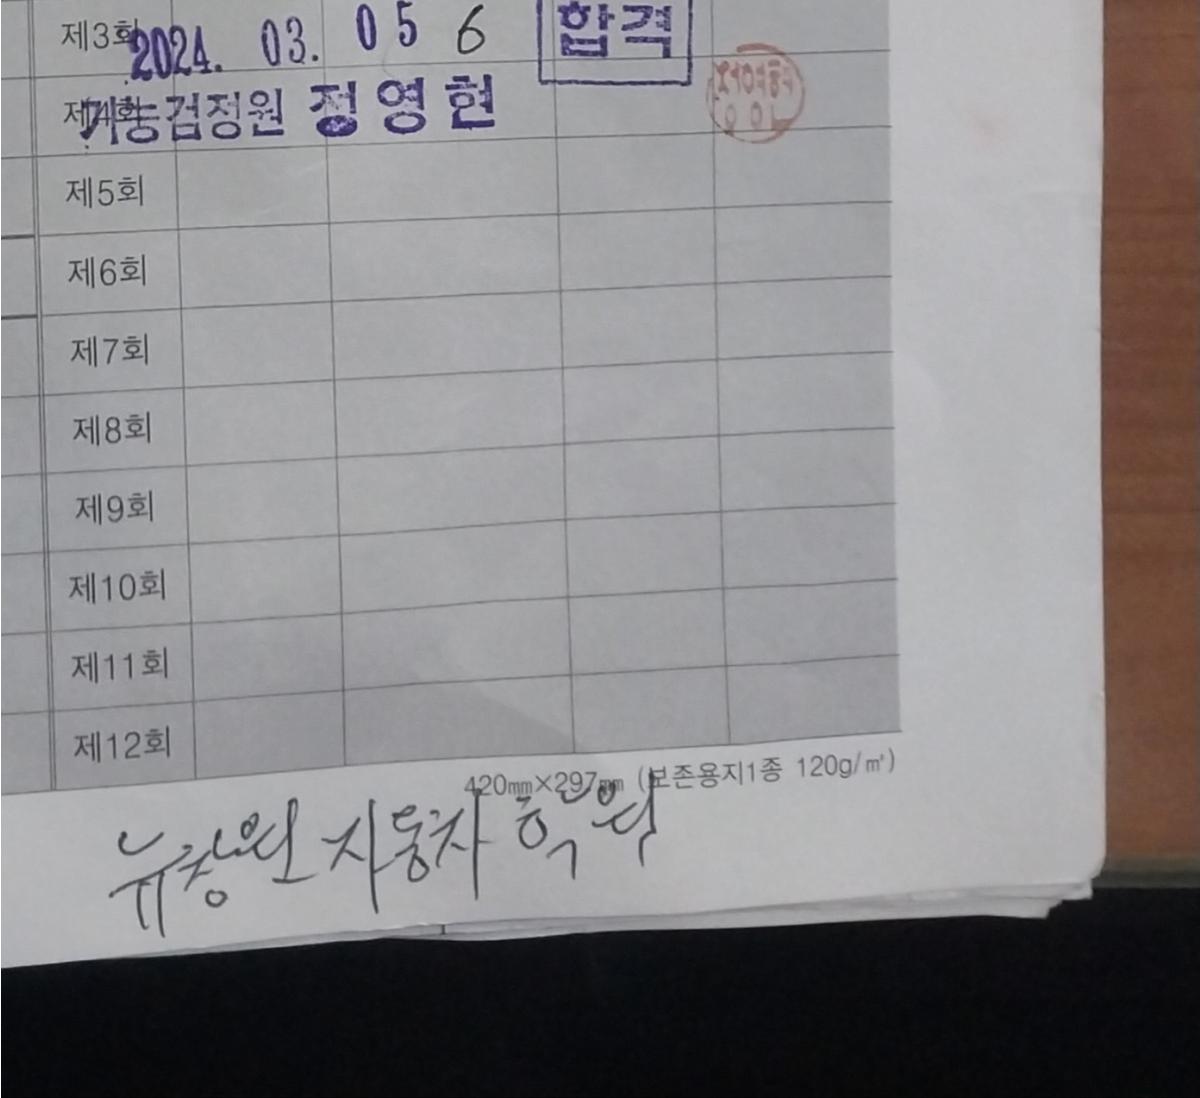 제3회 2024. 03. 05 6 합격
제4회 기능검정원 정영현
제5회
제6회
제7회
제8회
제9회
제10회
제11회
제12회
420㎜×297㎜ (보존용지1종 120g/㎡)
뉴창원 자동차 학원